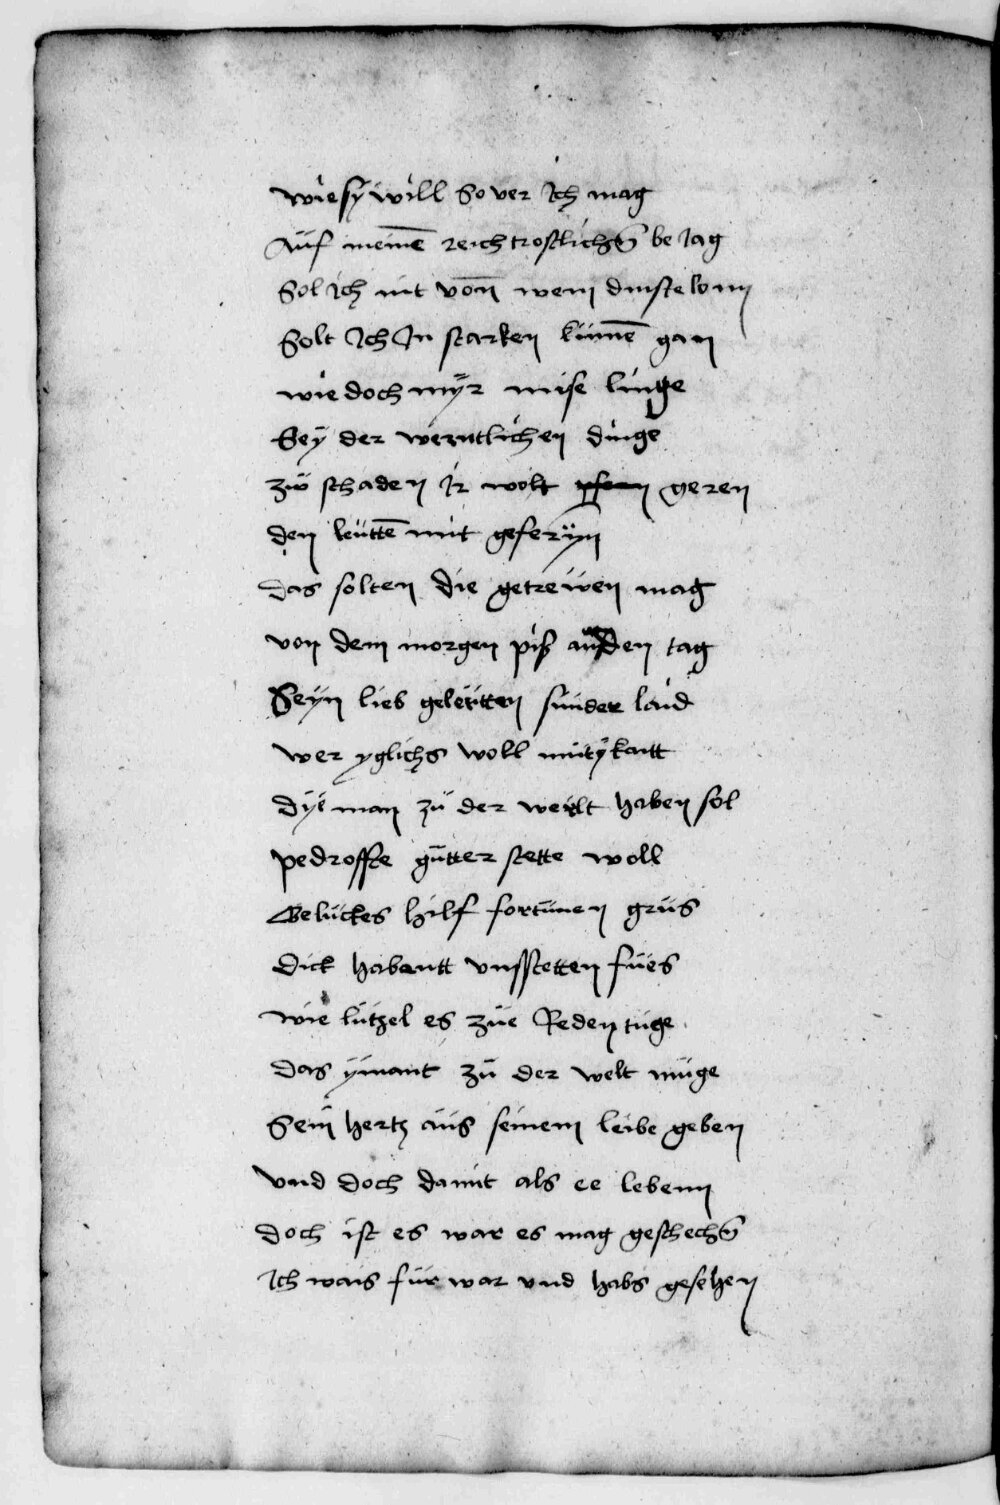 wie sÿ will So ver ich mag
Aúf meinē reich trostlichen̄ be Jag
Sol ich nit voñ wem dinste lonn
Solt Ich In starken kúnnē gan
wie doch mÿr mise linge
Seÿ der werntlichen dinge
zúo schaden Ir wolt geren
den leúttē mit geferÿn
das solten die getreúen mag
von dem morgen piß aúf den tag
Seÿn lieb geleútten súnder laid
wer yglichs woll mitÿkantt
dÿe man zú der werlt haben sol
pedroffte gútter stette woll
Gelúckes hilf fortúnen grús
dick habantt vnsstetten fúes
wie lútzel es zúe Reden túge
das ÿmant zú der welt múge
Sein hertz aús seinem leibe geben
vnd doch damit als ee lebenn
doch ist es war es mag geschechen̄
Ich wais fúr war vnd habs gesehen